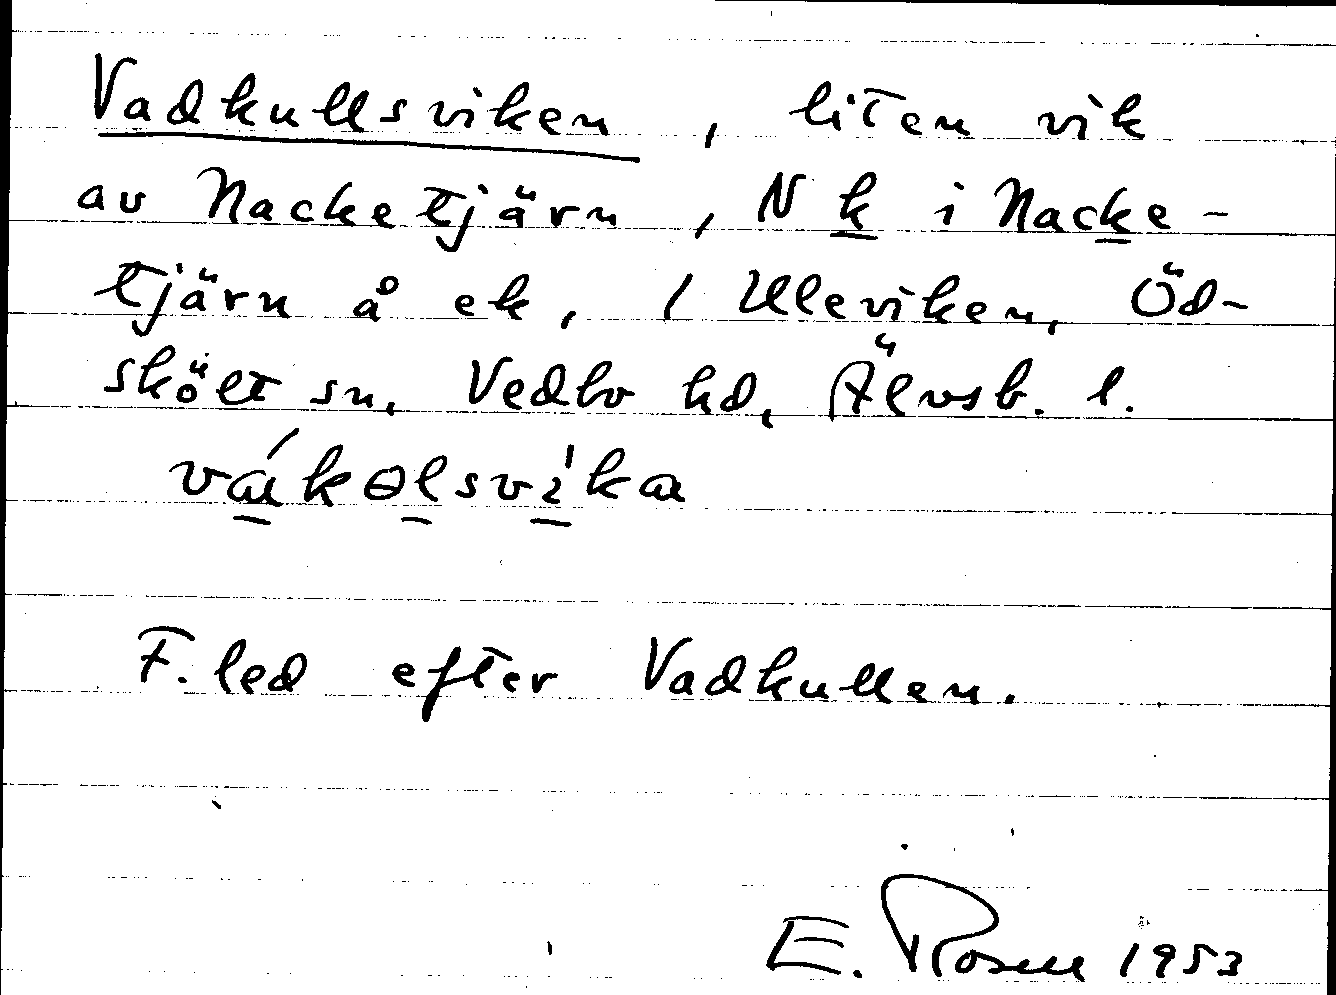 Vadkullsviken, liten vik
av Nacketjärn, N k i Nacke-
tjärn å ek, 1 Uleviken, Öd-
skölt sn, Vedbo hd, Älvsb. l.
vákɵlsvı̍ka
F. led efter Vadkullen.
E. Rosell 1953